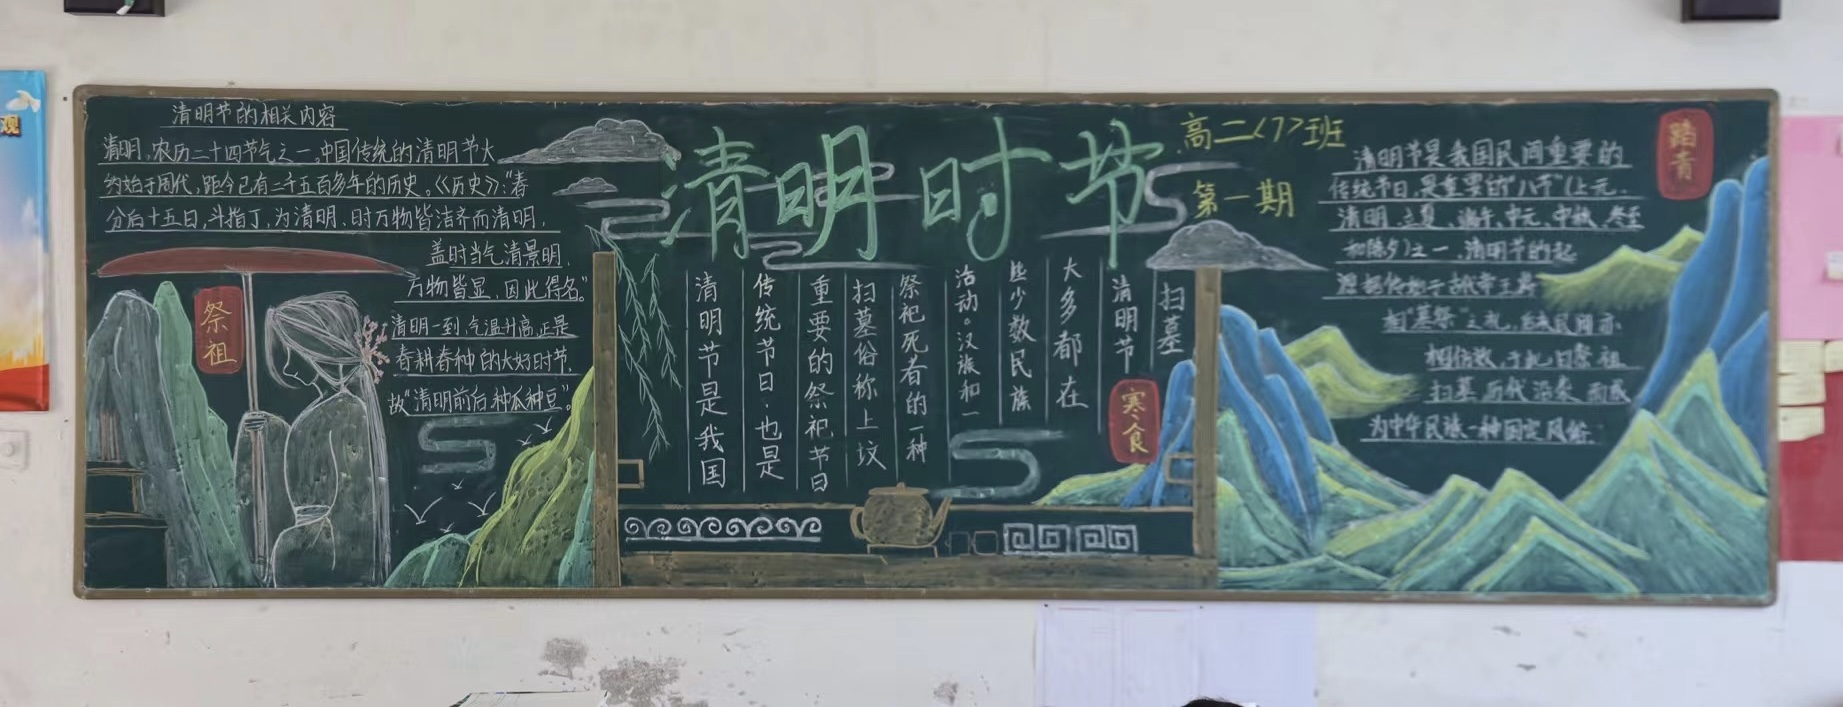 观
清明节的相关内容
清明,农历二十四节气之一,中国传统的清明节大
约始于周代,距今已有二千五百多年的历史。《历史》:"春
分后十五日,斗指丁,为清明,时万物皆洁齐而清明,
盖时当气清景明,
万物皆显,因此得名。"
清明一到,气温升高,正是
春耕春种的大好时节,
故"清明前后,种瓜种豆"。
祭祖
清明时节
高二<7>班
第一期
清明节是我国
传统节日,也是
重要的祭祀节日
扫墓俗称上坟
祭祀死者的一种
活动。汉族和一
些少数民族
大多都在
清明节
扫墓
寒食
踏青
清明节是我国民间重要的
传统节日,是重要的"八节"(上元、
清明、立夏、端午、中元、中秋、冬至
和除夕)之一,清明节的起
源据传始于古代帝王将
相"墓祭"之礼,后来民间亦
相仿效,于此日祭祖
扫墓,历代沿袭而成
为中华民族一种固定风俗.